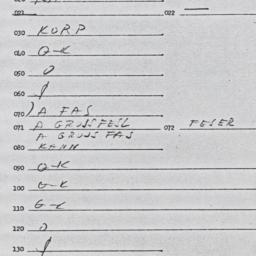 021 022
030 KORP
040 O-K
050 0
060
070 A FAS
071 A GROSSFESL 072 FESER
A GROSS FAS
080 KANN
090 O-K
100 G-K
110 G-K
120 0
130